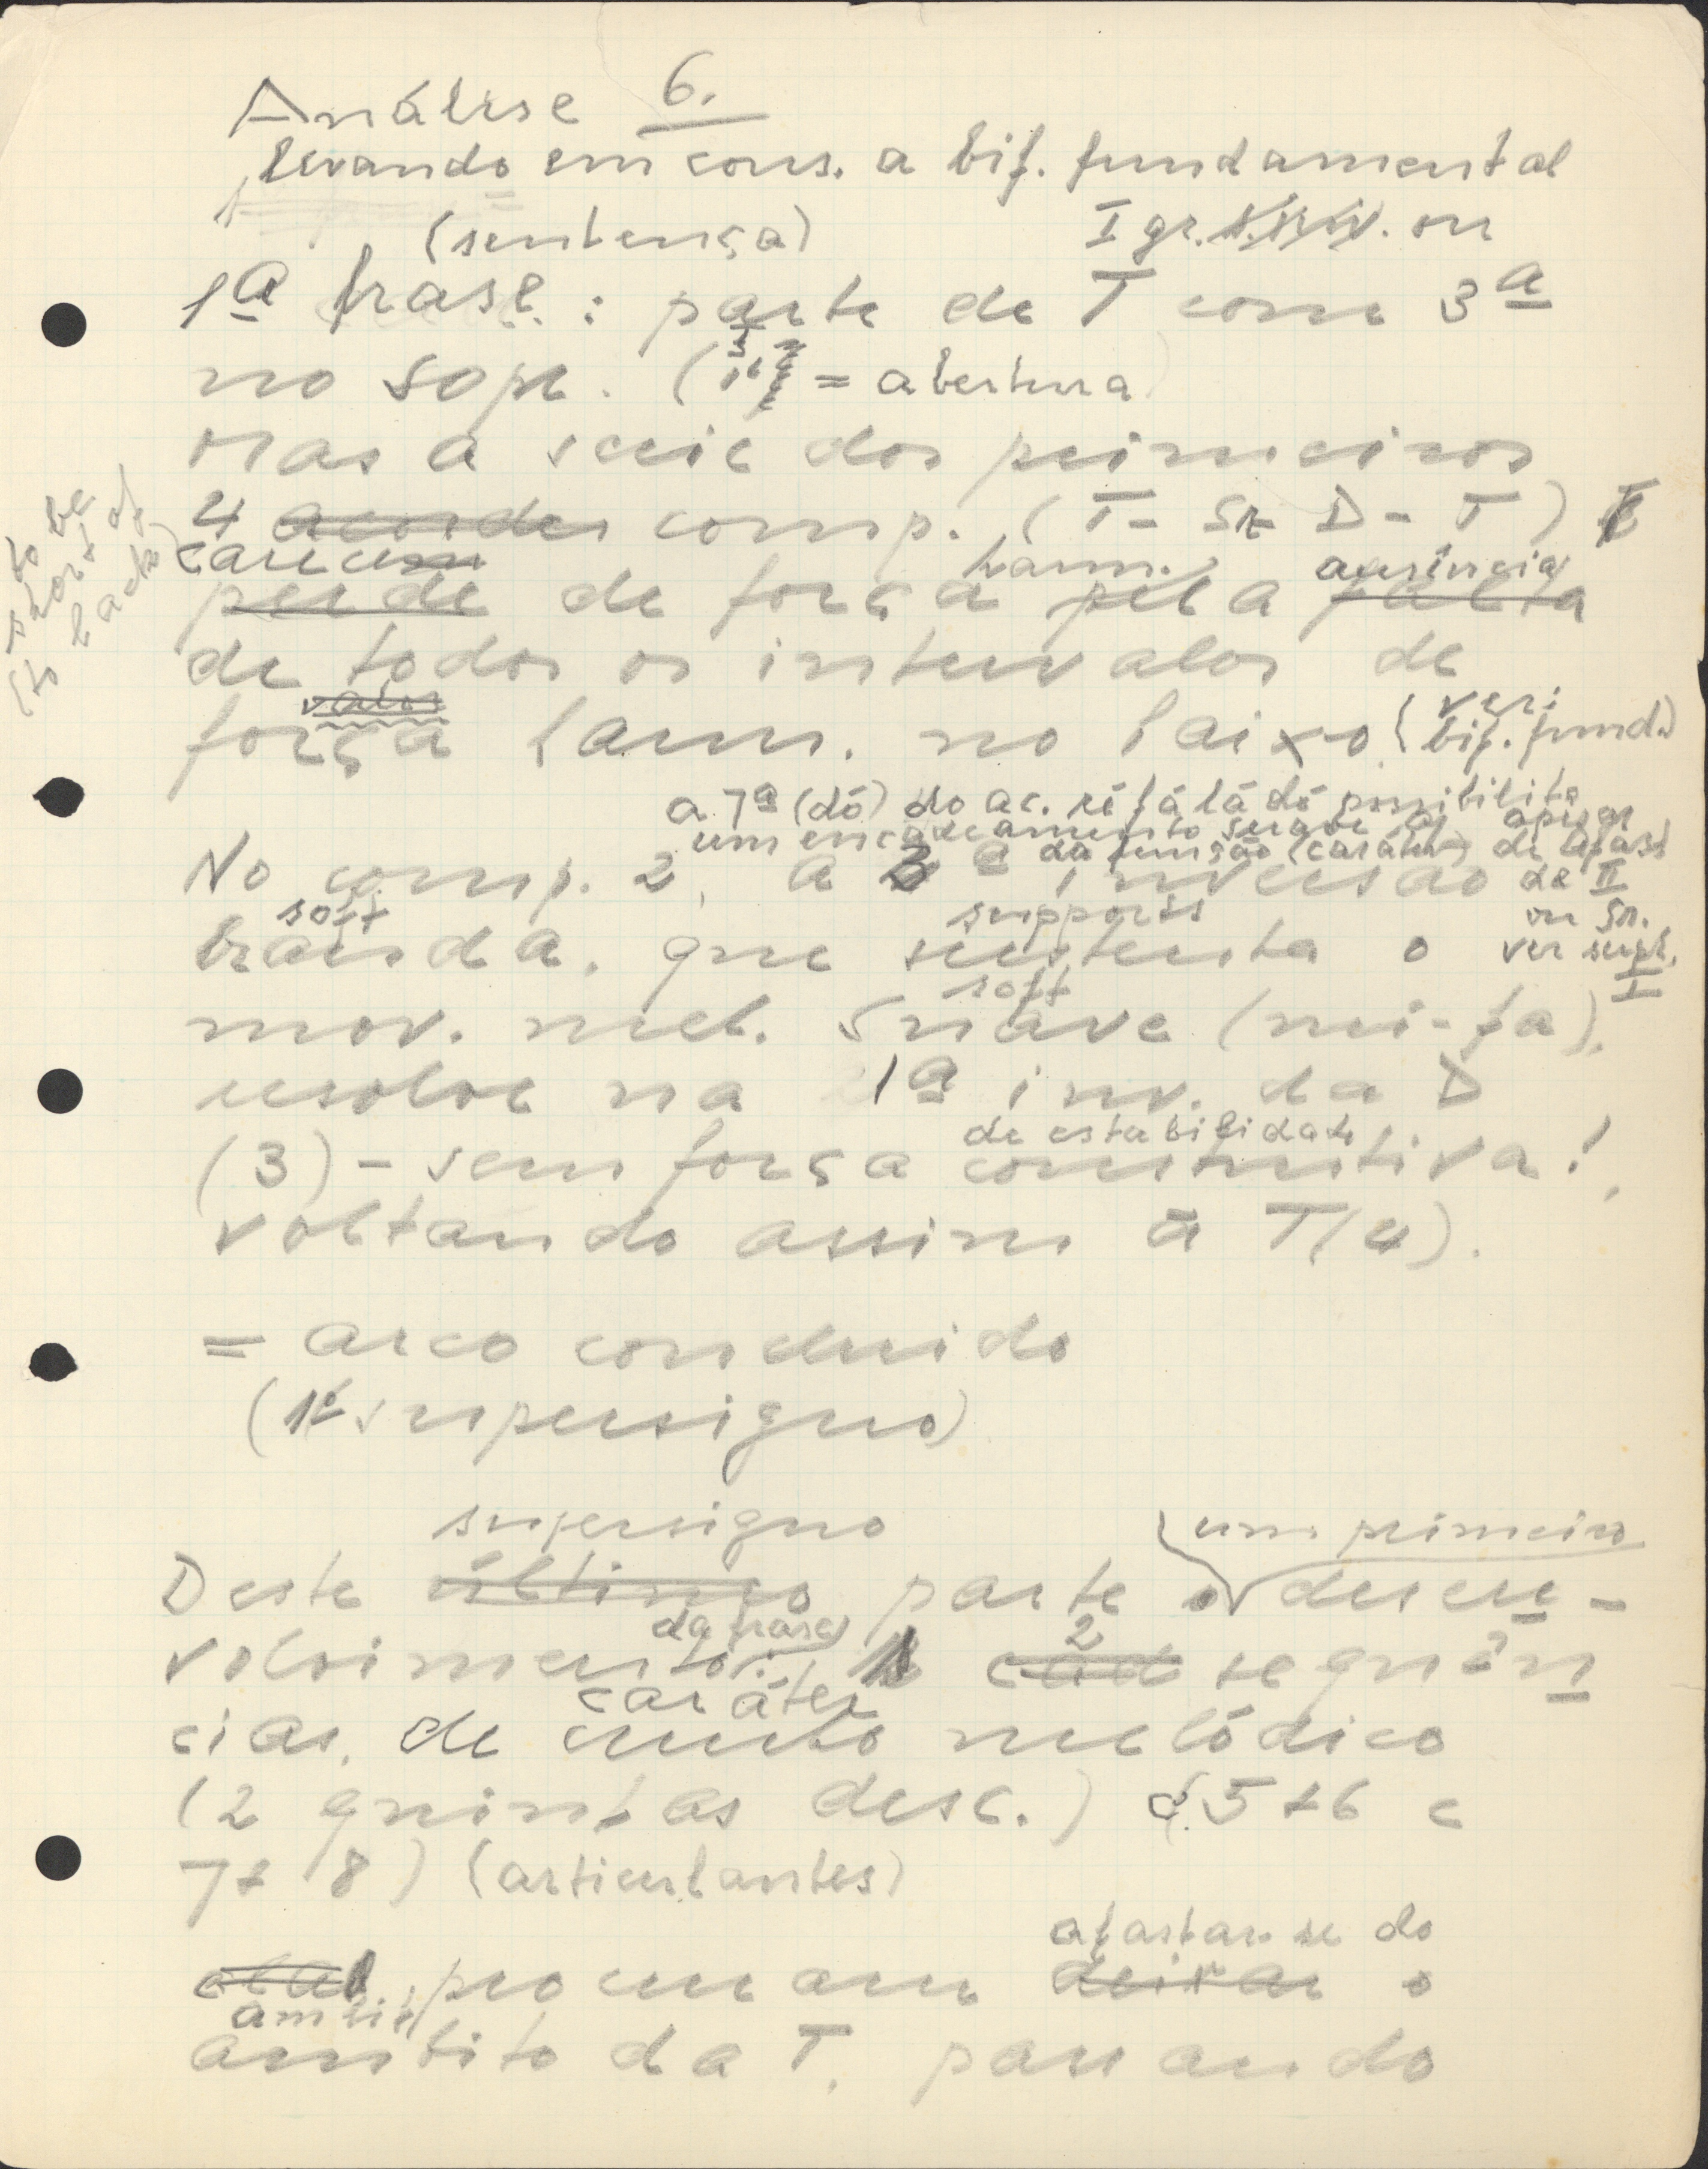 Análise 6.
levando em cons. a bif. fundamental
(sentença) I gr. ou
1ª frase: parte de T com 3ª
no sopr. ( = abertura)
Mas a serie dos primeiros
4 acordes comp. (T - Sr - D - T)
carecem harm. ausência
perde de força pela falta
de todos os intervalos de
valor
força harm. no baixo (ver: bif. fund.)
(to be short of
to lack)
a 7ª (dó) do ac. ré fá lá dó possibilita
um encadeamento suave apesar
da função (caráter) de afast
de II
ou Sr.
ver supl.
I
No comp. 2, a inversão
soft supports
branda, que sustenta o
soft
mov. mel. suave (mi-fa),
resolve na 1ª inv. da D
de estabilidade
(3) - sem força construtiva!,
voltando assim à T (4).
= arco concluido
(1º supersigno)
supersigno um primeiro
Deste último parte o desen-
da frase 2
volvimento: cad sequên
caráter
cias, de cunho melódico
(2 quintas desc.) (5+6 e
7+8) (articulantes)
afastar-se do
procuram deixar o
âmbito
ambito da T, passando